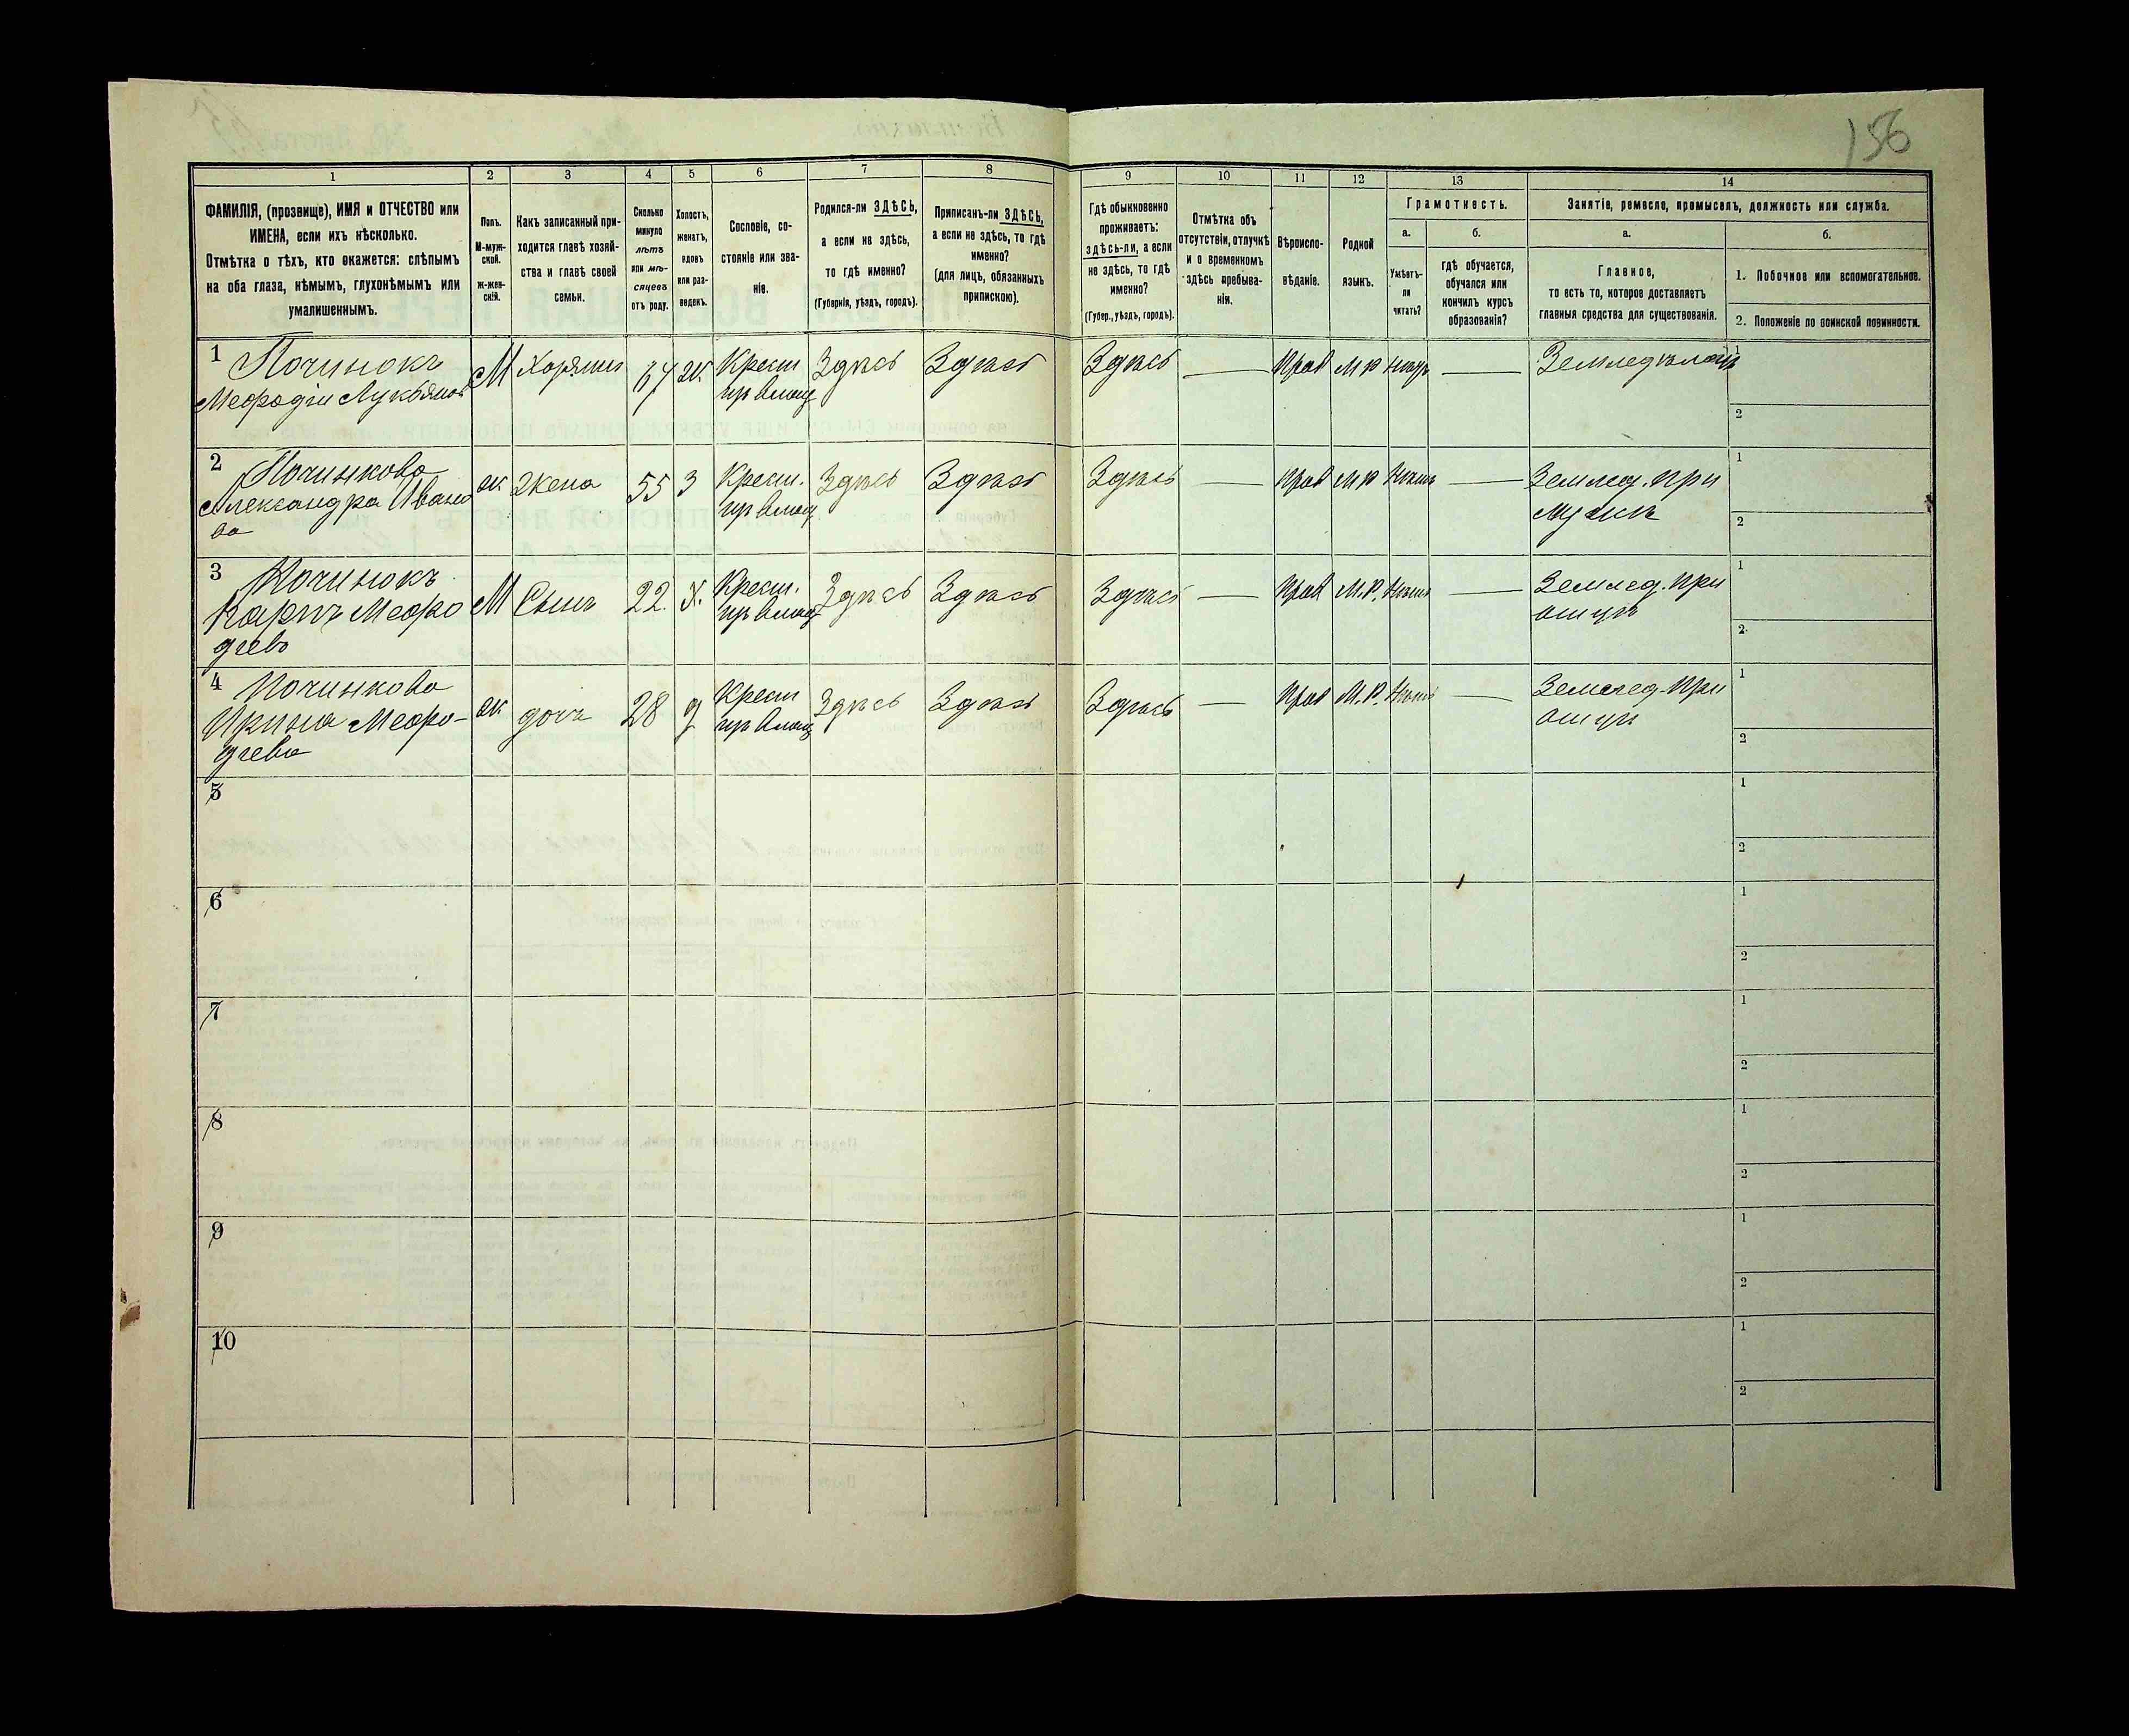 156
1 2 3 4 5 6 7 8 9 10 11 12 13 14
ФАМИЛІЯ, (прозвище), ИМЯ и ОТЧЕСТВО или
ИМЕНА, если ихъ нѣсколько.
Отмѣтка о тѣхъ, кто окажется: слѣпымъ
на оба глаза, нѣмымъ, глухонѣмымъ или
умалишеннымъ.
Полъ.
М-муж-
ской.
Ж-жен-
скій.
Какъ записанный при-
ходится главѣ хозяй-
ства и главѣ своей
семьи.
Сколько
минуло
лѣтъ
или мѣ-
сяцевъ
отъ роду.
Холостъ,
женатъ,
вдовъ
или раз-
веденъ.
Сословіе, со-
стояніе или зва-
ніе.
Родился-ли ЗДѢСЬ,
а если не здѣсь,
то гдѣ именно?
(Губернія, уѣздъ, городъ).
Приписанъ-ли ЗДѢСЬ,
а если не здѣсь, то гдѣ
именно?
(для лицъ, обязанныхъ
припискою).
Гдѣ обыкновенно
проживаетъ:
ЗДѢСЬ-ли, а если
не здѣсь, то гдѣ
именно?
(Губер., уѣздъ, городъ).
Отмѣтка объ
отсутствіи, отлучкѣ
и о временномъ
здѣсь пребыва-
ніи.
Вѣроиспо-
вѣданіе.
Родной
языкъ.
Грамотность.
а.
Умѣетъ-
ли
читать?
б.
гдѣ обучается,
обучался или
кончилъ курсъ
образованія?
Занятіе, ремесло, промыселъ, должность или служба.
а.
Главное,
то есть то, которое доставляетъ
главныя средства для существованія.
б.
1. Побочное или вспомогательное.
2. Положеніе по воинской повинности.
1 Починокъ
Мефодіи Лукьяновъ
М Хозяинъ ж Крест
Здѣсь Здѣсь Здѣсь — Прав М Р — Земледѣлецъ
1
2
2 Починкова
Александра Ивано
ва
ж Жена 55 З Крест.
Здѣсь Здѣсь Здѣсь — Прав М Р — Землед. при
мужѣ
1
2
3 Починокъ
Карпъ Мефо
діевъ
М Сынъ 22. Х. Крест.
Здѣсь Здѣсь Здѣсь — Прав М.Р. — Землед. при
отцѣ
1
2
4 Починкова
Ирина Мефо-
діева
ж дочь 28 д Крест
Здѣсь Здѣсь Здѣсь — Прав М.Р. — Землед. при
отцѣ
1
2
5
1
2
6
1
2
7
1
2
8
1
2
9
1
2
10
1
2